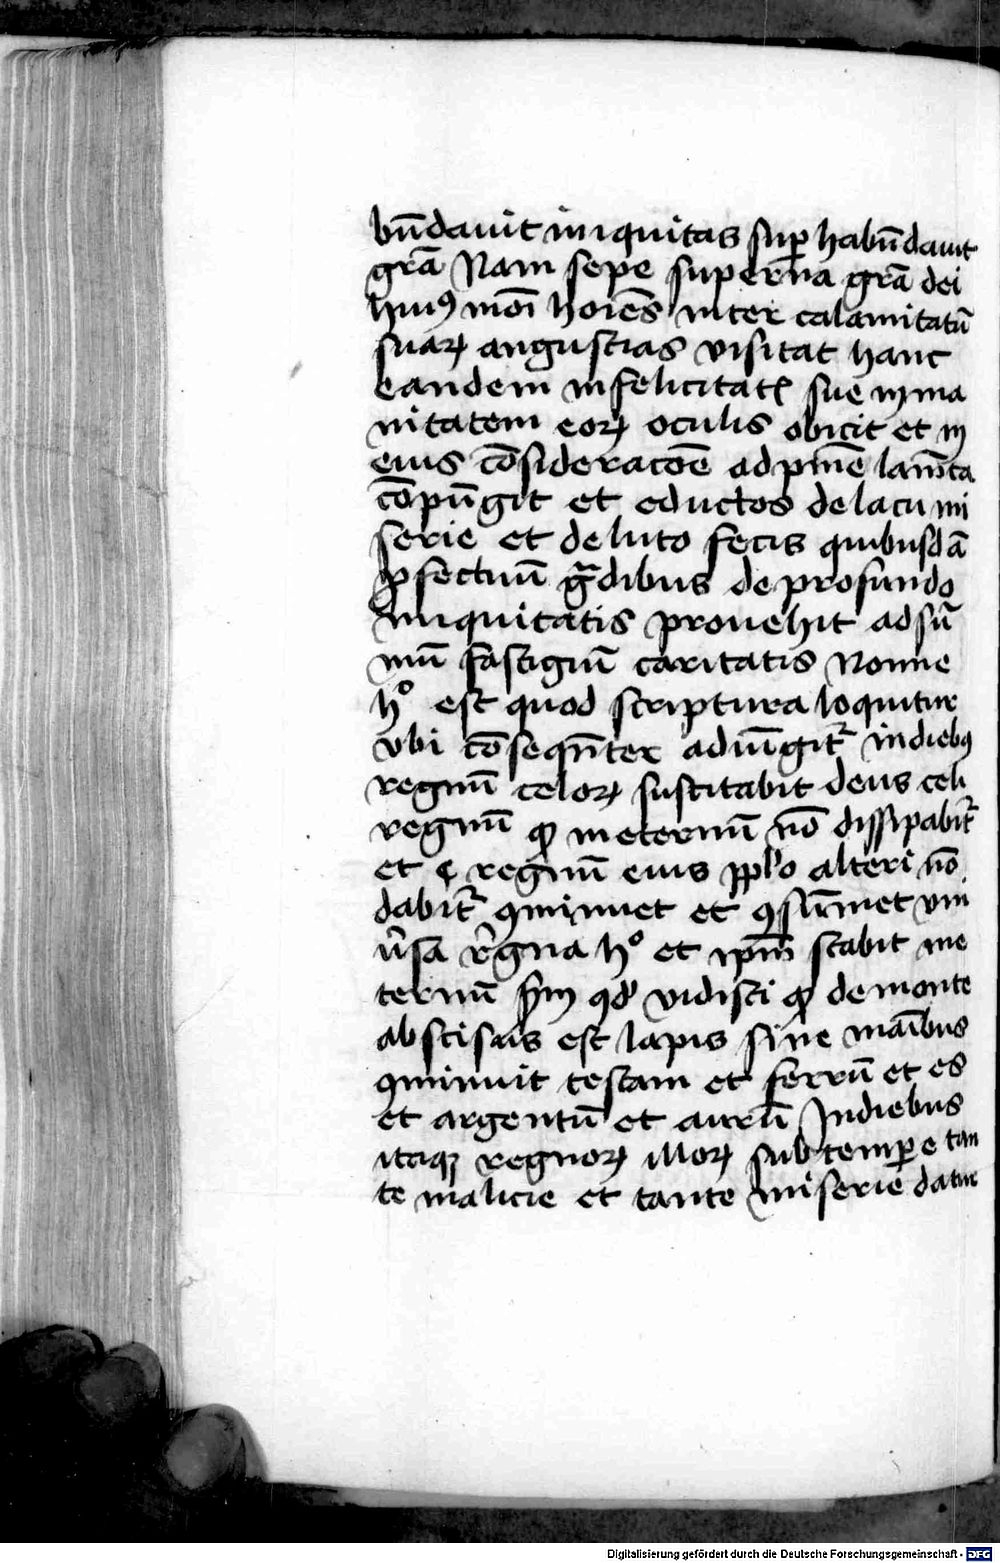 būdauit iniquitas suꝑ habūdauit
grā Nam sepe superna grā dei
huiꝰ mōi hoīes inter calamitatū
suaꝝ angustias visitat hanc
eandem infelicitatē sue inma
nitatem eoꝝ oculis obicit et in
eius cōsideracōe ad pn̄ie lam̄ta
cōpūgit et eductos de lacu mi
serie et de luto fecis quibusdā
ꝓfectuū gᷓdibus de profundo
iniquitatis prouehit ad sū
mū fastigiū caritatis Nonne
hͦ est quod scriptura loquitur
vbi cōseqn̄ter adiūgitᷣ in diebꝰ
regnū celoꝝ suscitabit deus celi
regnū ꝙ in eternū nō dissipabitᷣ
et ⁊ regnū eius pplo alteri nō
dabitᷣ ꝯminuet et ꝯsūmet vni
uᷣsa rᷣgna hͦ et ip̄m stabit in e
ternū ẜm qd vidisti ꝙ de monte
abscisus est lapis sine māibus
ꝯminuit testam et ferrū et es
et argentū et aurū In diebus
itaqꝫ regnoꝝ illoꝝ sub temꝑe tan
te malicie et tante miserie datur
Digitalisierung gefördert durch die Deutsche Forschungsgemeinschaft - DFG